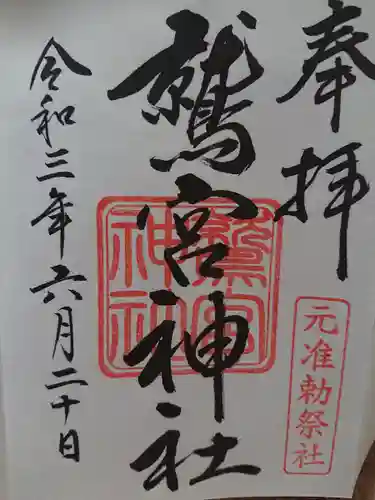 奉拝
元准勅祭社
鷲宮神社
鷲宮神社
令和三年六月二十日